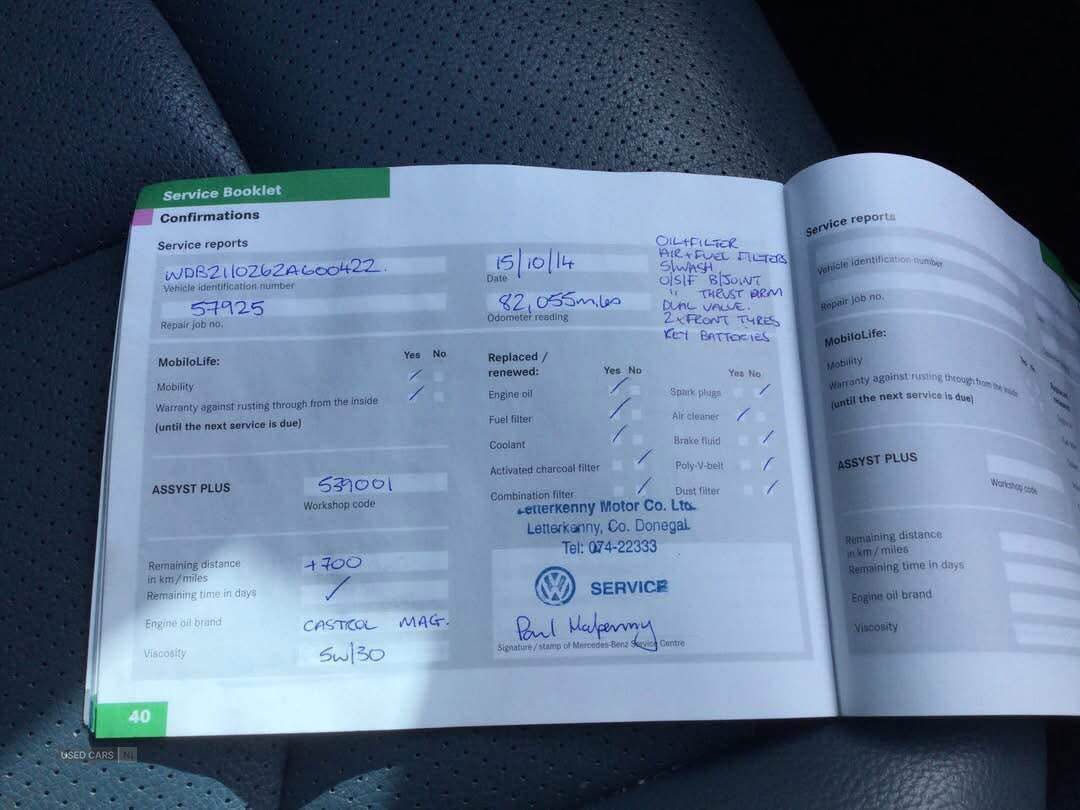 Service Booklet
Confirmations
Service reports
WDB2110262A600422.
Vehicle identification number
57925
Repair job no.
15/10/14
Date
82,055miles
Odometer reading
OIL+FILTER
AIR+FUEL FILTERS
S/WASH
O/S/F B/JOINT
" THRUST ARM
DUAL VALVE.
2xFRONT TYRES
KEY BATTERIES
MobiloLife:
Yes No
Mobility
Warranty against rusting through from the inside
(until the next service is due)
ASSYST PLUS
539001
Workshop code
Remaining distance
in km/miles
+700
Remaining time in days
Engine oil brand
CASTROL MAG.
Viscosity
5W/30
Replaced /
renewed:
Yes No
Engine oil
Fuel filter
Coolant
Activated charcoal filter
Combination filter
Yes No
Spark plugs
Air cleaner
Brake fluid
Poly-V-belt
Dust filter
Letterkenny Motor Co. Ltd.
Letterkenny, Co. Donegal.
Tel: 074-22333
VW SERVICE
Paul
Signature / stamp of Mercedes-Benz Service Centre
40
Service reports
Vehicle identification number
Repair job no.
MobiloLife:
Mobility
Warranty against rusting through from the inside
(until the next service is due)
ASSYST PLUS
Workshop code
Remaining distance
in km/miles
Remaining time in days
Engine oil brand
Viscosity
USED CARS NI